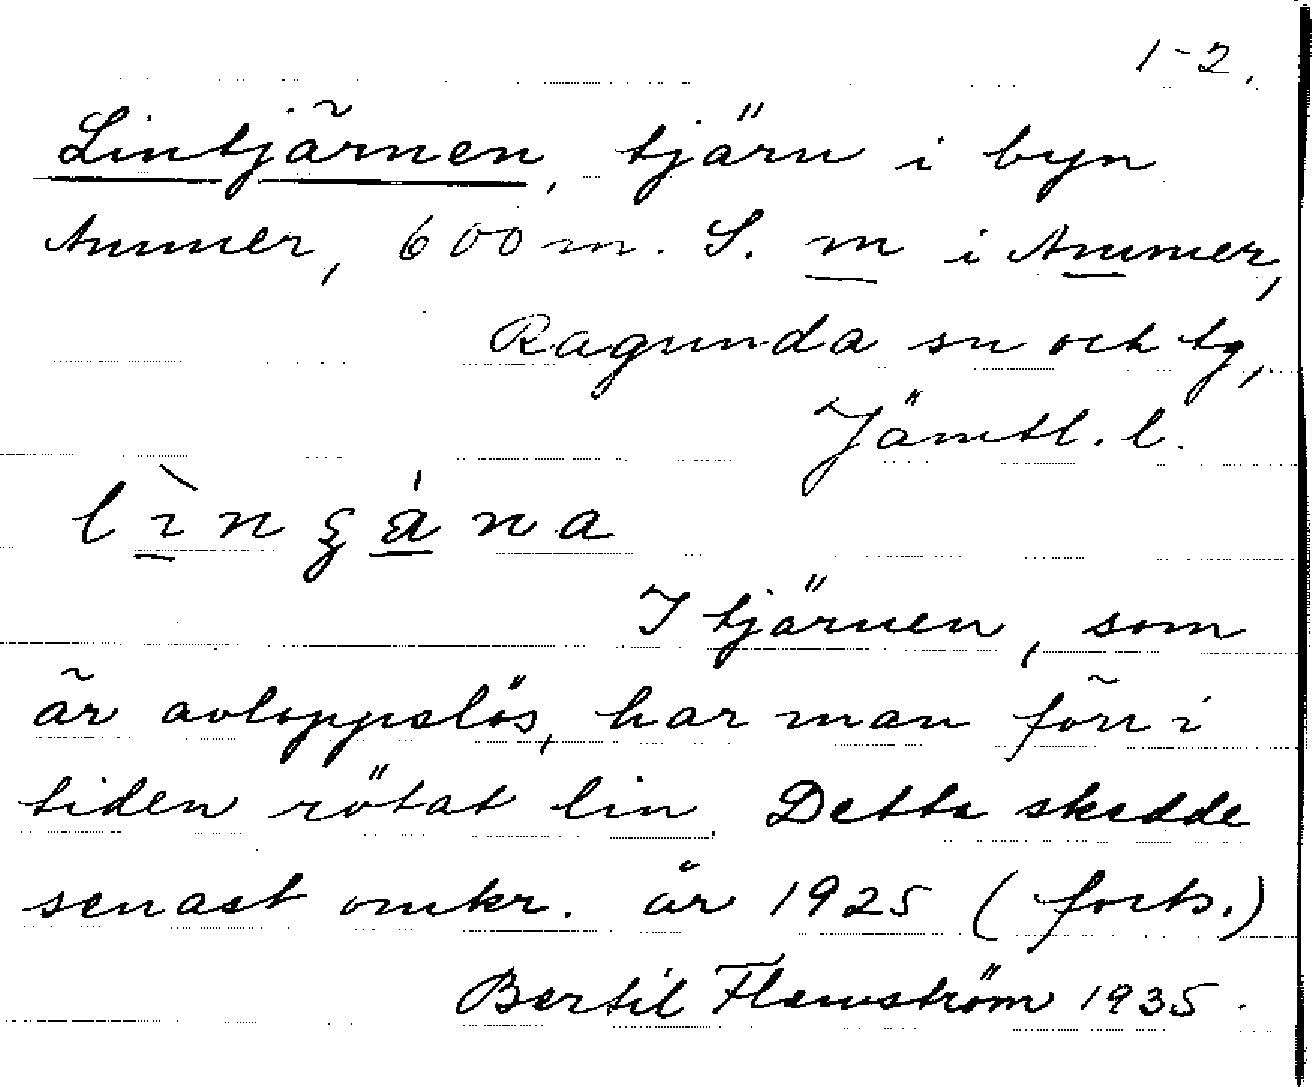 1-2.
Lintjärnen, tjärn i byn
Ammer, 600 m. S. m i Ammer,
Ragunda sn och tg,
Jämtl. l.
I tjärnen, som
är avloppslös, har man förr i
tiden rötat lin. Detta skedde
senast omkr. år 1925 (forts.)
Bertil Flemström 1935.